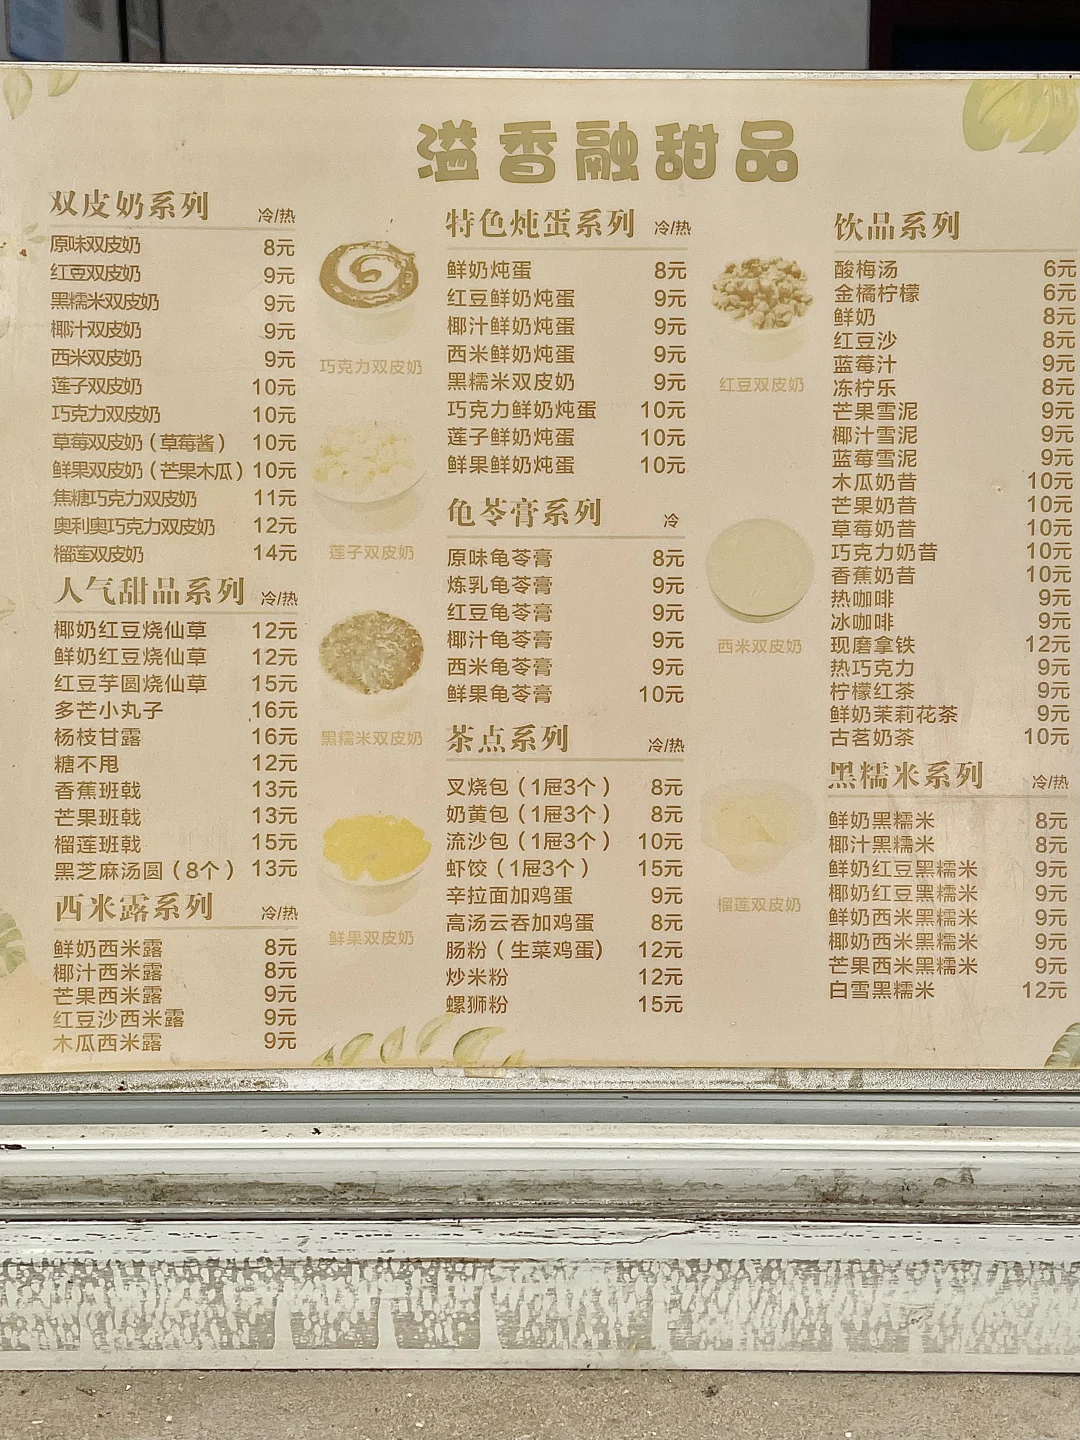 溢香融甜品
双皮奶系列 冷/热
原味双皮奶 8元
红豆双皮奶 9元
黑糯米双皮奶 9元
椰汁双皮奶 9元
西米双皮奶 9元
莲子双皮奶 10元
巧克力双皮奶 10元
草莓双皮奶（草莓酱） 10元
鲜果双皮奶（芒果木瓜） 10元
焦糖巧克力双皮奶 11元
奥利奥巧克力双皮奶 12元
榴莲双皮奶 14元
人气甜品系列 冷/热
椰奶红豆烧仙草 12元
鲜奶红豆烧仙草 12元
红豆芋圆烧仙草 15元
多芒小丸子 16元
杨枝甘露 16元
糖不甩 12元
香蕉班戟 13元
芒果班戟 13元
榴莲班戟 15元
黑芝麻汤圆（8个） 13元
西米露系列 冷/热
鲜奶西米露 8元
椰汁西米露 8元
芒果西米露 9元
红豆沙西米露 9元
木瓜西米露 9元
巧克力双皮奶
莲子双皮奶
黑糯米双皮奶
鲜果双皮奶
特色炖蛋系列 冷/热
鲜奶炖蛋 8元
红豆鲜奶炖蛋 9元
椰汁鲜奶炖蛋 9元
西米鲜奶炖蛋 9元
黑糯米双皮奶 9元
巧克力鲜奶炖蛋 10元
莲子鲜奶炖蛋 10元
鲜果鲜奶炖蛋 10元
龟苓膏系列 冷
原味龟苓膏 8元
炼乳龟苓膏 9元
红豆龟苓膏 9元
椰汁龟苓膏 9元
西米龟苓膏 9元
鲜果龟苓膏 10元
茶点系列 冷/热
叉烧包（1屉3个） 8元
奶黄包（1屉3个） 8元
流沙包（1屉3个） 10元
虾饺（1屉3个） 15元
辛拉面加鸡蛋 9元
高汤云吞加鸡蛋 8元
肠粉（生菜鸡蛋） 12元
炒米粉 12元
螺狮粉 15元
红豆双皮奶
西米双皮奶
榴莲双皮奶
饮品系列
酸梅汤 6元
金橘柠檬 6元
鲜奶 8元
红豆沙 8元
蓝莓汁 9元
冻柠乐 8元
芒果雪泥 9元
椰汁雪泥 9元
蓝莓雪泥 9元
木瓜奶昔 10元
芒果奶昔 10元
草莓奶昔 10元
巧克力奶昔 10元
香蕉奶昔 10元
热咖啡 9元
冰咖啡 9元
现磨拿铁 12元
热巧克力 9元
柠檬红茶 9元
鲜奶茉莉花茶 9元
古茗奶茶 10元
黑糯米系列 冷/热
鲜奶黑糯米 8元
椰汁黑糯米 8元
鲜奶红豆黑糯米 9元
椰奶红豆黑糯米 9元
鲜奶西米黑糯米 9元
椰奶西米黑糯米 9元
芒果西米黑糯米 9元
白雪黑糯米 12元